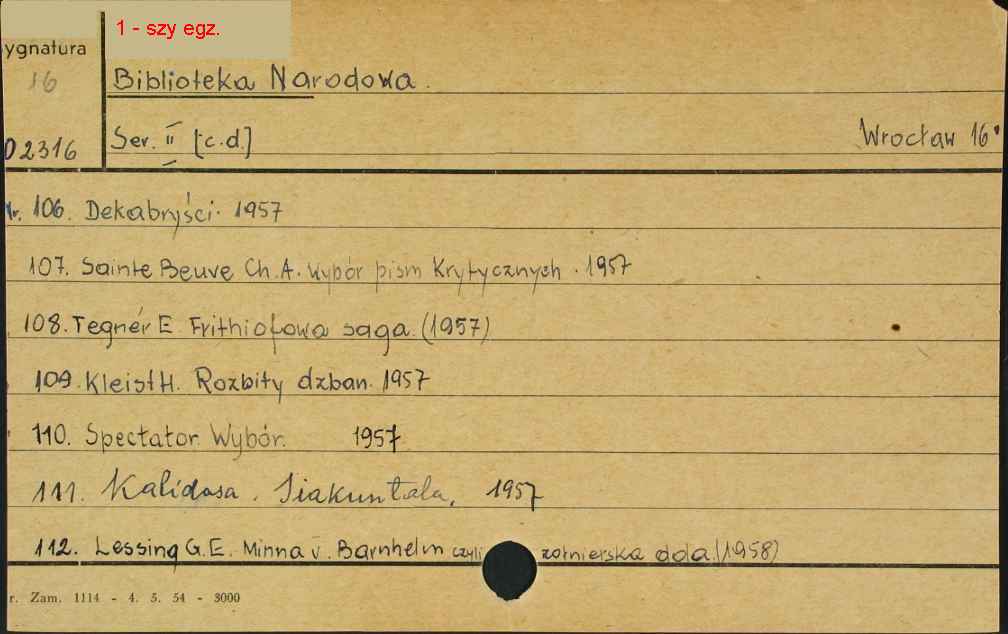 1 - szy egz.
ygnatura
16
Biblioteka Narodowa.
02316
Ser. II [c.d.]
Wrocław 16°
Nr. 106. Dekabryści. 1957
107. Sainte Beuve Ch. A. Wybór pism Krytycznych. 1957
108. Tegnér E. Frithiofowa saga. (1957)
109. Kleist H. Rozbity dzban. 1957
110. Spectator. Wybór. 1957
111. Kalidasa. Siakuntala. 1957
112. Lessing G.E. Minna v. Barnhelm czyli żołnierska dola. (1958)
r. Zam. 1114 - 4. 5. 54 - 3000